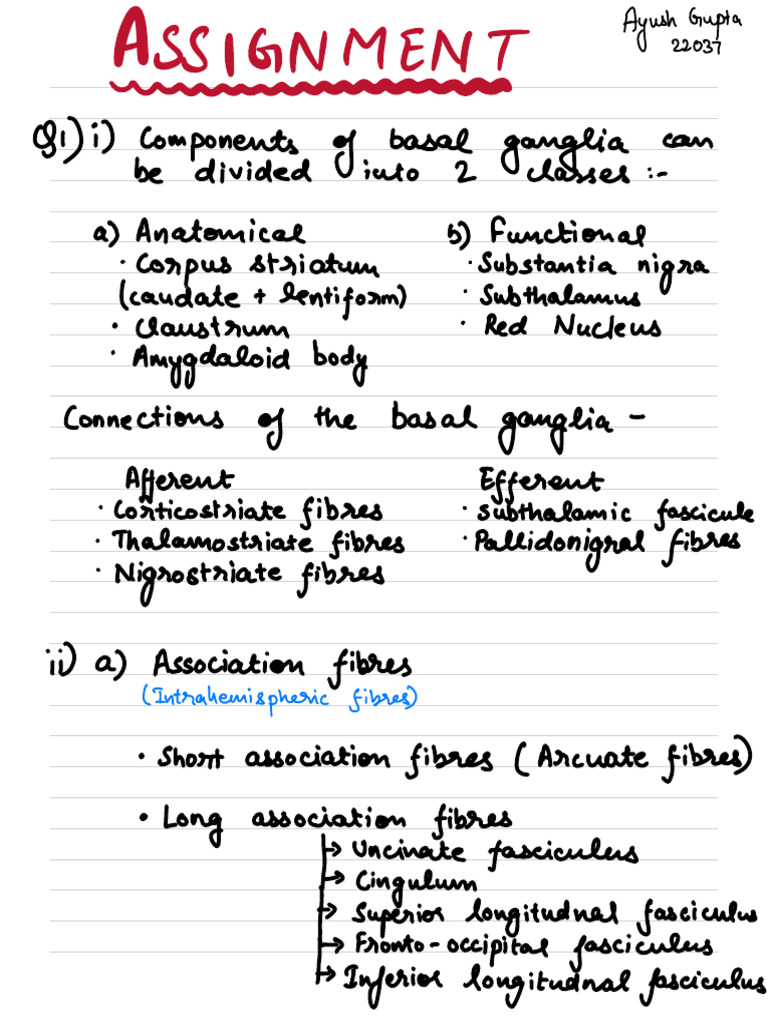 ASSIGNMENT
Ayush Gupta
22037
Q1) i) Components of basal ganglia can
be divided into 2 classes :-
a) Anatomical
· Corpus striatum
(caudate + lentiform)
· Claustrum
· Amygdaloid body
b) Functional
· Substantia nigra
· Subthalamus
· Red Nucleus
Connections of the basal ganglia -
Afferent
· Corticostriate fibres
· Thalamostriate fibres
· Nigrostriate fibres
Efferent
· Subthalamic fascicule
· Pallidonigral fibres
ii) a) Association fibres
(Intrahemispheric fibres)
· Short association fibres (Arcuate fibres)
· Long association fibres
→ Uncinate fasciculus
→ Cingulum
→ Superior longitudnal fasciculus
→ Fronto-occipital fasciculus
→ Inferior longitudnal fasciculus